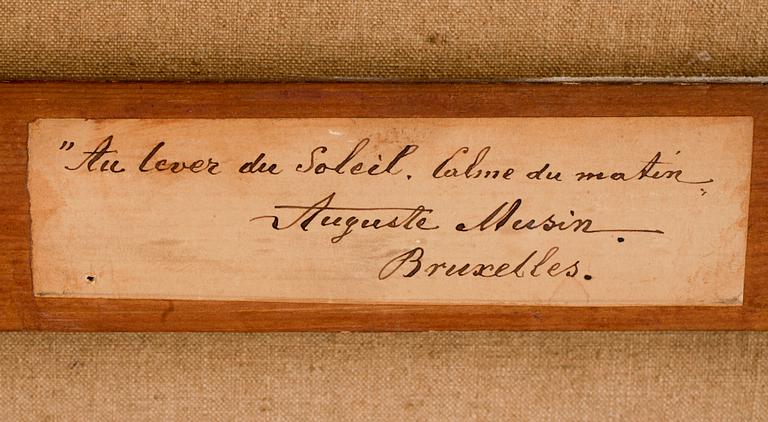 "Au lever du Soleil. Calme du matin"
Auguste Musin.
Bruxelles.